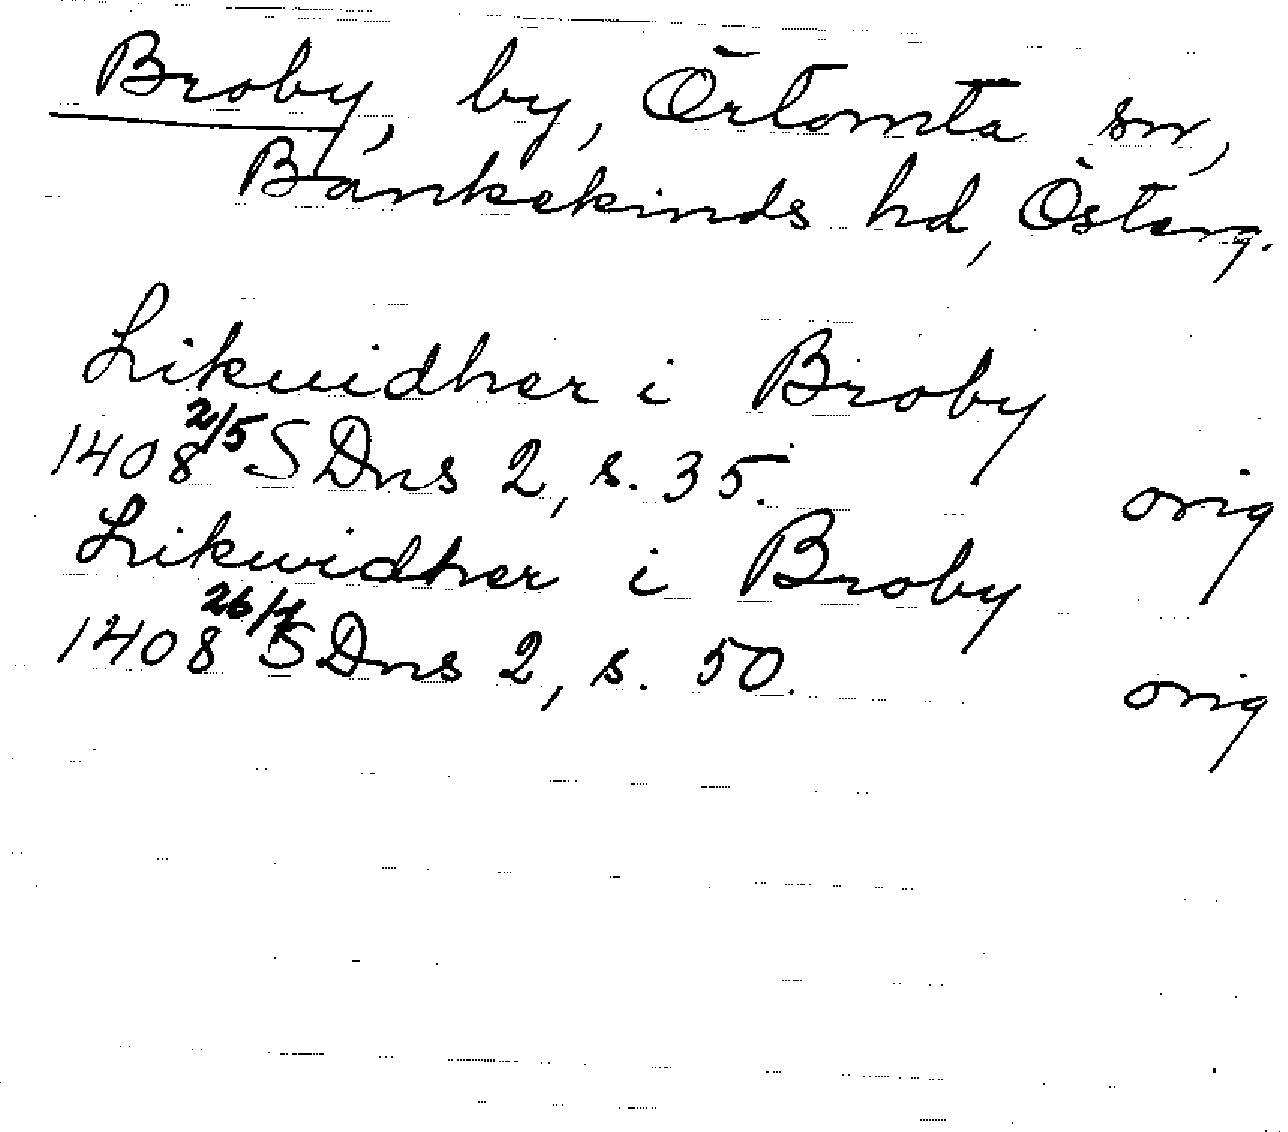 Broby, by, Örtomta sn,
Bankekinds hd, Österg.
Likuidher i Broby
1408 2/5 SDns 2, s. 35. orig
Likwidher i Broby
1408 26/7 SDns 2, s. 50. orig